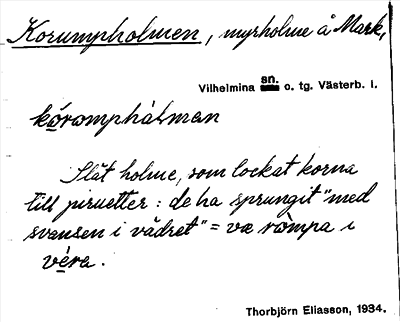 Korumpholmen, myrholme å Mark,
Vilhelmina sn. o. tg. Västerb. l.
kórompholman
Slät holme, som lockat korna
till piruetter: de ha sprungit "med
svansen i vädret" = væ ròmpa i
véra.
Thorbjörn Eliasson, 1934.